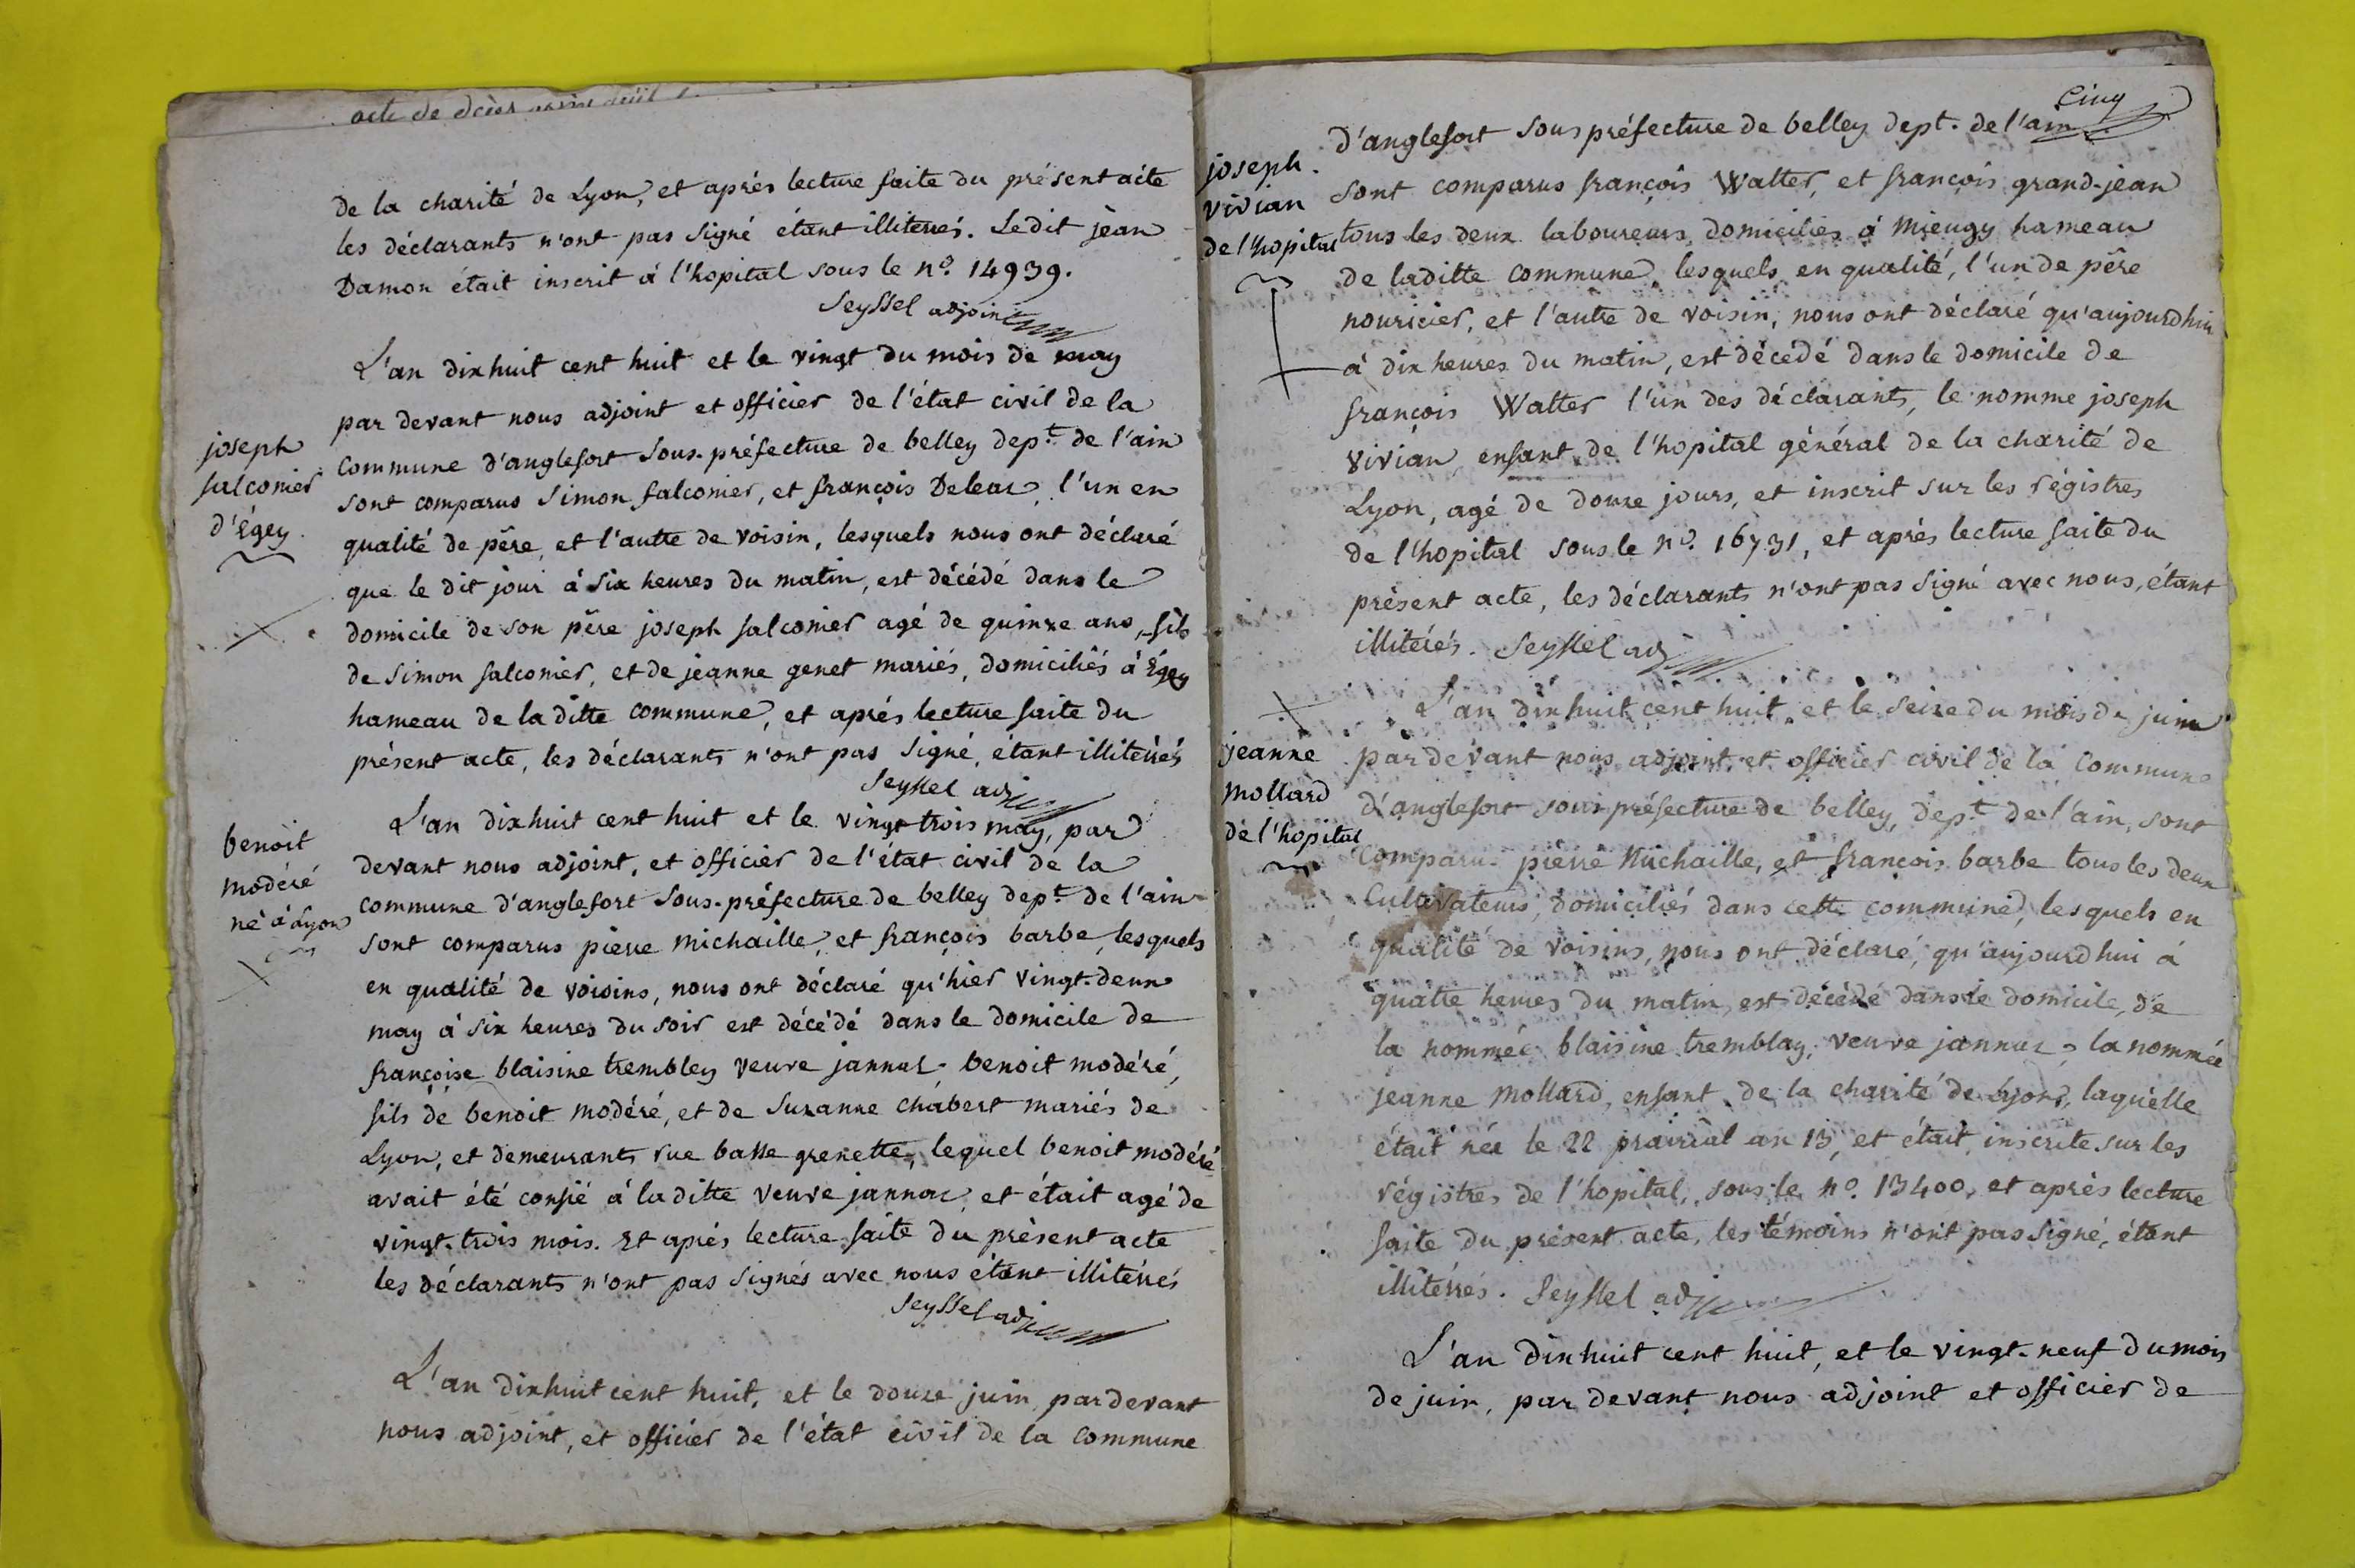 acte de décès
de la charité de Lyon, et après lecture faite du présent acte
les déclarants n'ont pas signé étant illiterés. Ledit jean
Damon était inscrit à l'hopital sous le n.º 14939.
Seyssel adjoint
L'an dixhuit cent huit et le vingt du mois de may
par devant nous adjoint et officier de l'état civil de la
commune d'anglefort sous-préfecture de belley dep.t de l'ain
sont comparus Simon falconier, et françois Deleaz, l'un en
qualité de père, et l'autre de voisin, lesquels nous ont déclaré
que le dit jour à six heures du matin, est décédé dans le
domicile de son père joseph falconier agé de quinze ans, fils
de Simon falconier, et de jeanne genet mariés, domiciliés à Égey
hameau de laditte commune, et après lecture faite du
présent acte, les déclarants n'ont pas signé, étant illiterés
Seyssel adj
joseph
falconier
d'Égey.
L'an dixhuit cent huit et le vingt trois may, par
devant nous adjoint, et officier de l'état civil de la
commune d'anglefort sous-préfecture de belley dep.t de l'ain
sont comparus pierre michaille, et françois barbe, lesquels
en qualité de voisins, nous ont déclaré qu'hier vingt-deux
may à six heures du soir est décédé dans le domicile de
françoise blaisine trembley veuve jannaz, benoit modéré,
fils de benoit modéré, et de Suzanne chabert mariés de
Lyon, et demeurants rue basse grenette, lequel benoit modéré
avait été confié à laditte veuve jannaz, et était agé de
vingt-trois mois. Et après lecture faite du présent acte
les déclarants n'ont pas signés avec nous étant illiterés
Seyssel adj
benoit
modéré
né à Lyon
L'an dixhuit cent huit, et le douze juin, par devant
nous adjoint, et officier de l'état civil de la commune
Cinq
d'anglefort sous préfecture de belley dept. de l'ain
sont comparus françois Walter, et françois grand-jean
tous les deux laboureurs, domiciliés à Mieugy hameau
de laditte commune, lesquels en qualité, l'un de père
nouricier, et l'autre de voisin, nous ont déclaré qu'aujourdhui
à dix heures du matin, est décédé dans le domicile de
françois Walter l'un des déclarants, le nomme joseph
vivian enfant de l'hopital général de la charité de
Lyon, agé de douze jours, et inscrit sur les régistres
de l'hopital sous le n.º 16731, et après lecture faite du
présent acte, les déclarants n'ont pas signé avec nous, étant
illiterés. Seyssel adj
joseph
vivian
de l'hopital
L'an dixhuit cent huit, et le seize du mois de juin
par devant nous adjoint, et officier civil de la commune
d'anglefort sous préfecture de belley, dep.t de l'ain, sont
comparus pierre Michaille, et françois barbe tous les deux
Cultivateurs, domiciliés dans cette commune, lesquels en
qualité de voisins, nous ont déclaré, qu'aujourdhui à
quatre heures du matin, est décédé dans le domicile, de
la nommée blaisine tremblay, veuve jannaz, la nommée
jeanne mollard, enfant de la charité de Lyon, laquelle
était née le 22 prairial an 13, et était inscrite sur les
régistres de l'hopital, sous le n.º 13400, et après lecture
faite du présent acte, les témoins n'ont pas signé, étant
illitérés. Seyssel adj
jeanne
mollard
de l'hopital
L'an dixhuit cent huit, et le vingt-neuf du mois
de juin, par devant nous adjoint et officier de